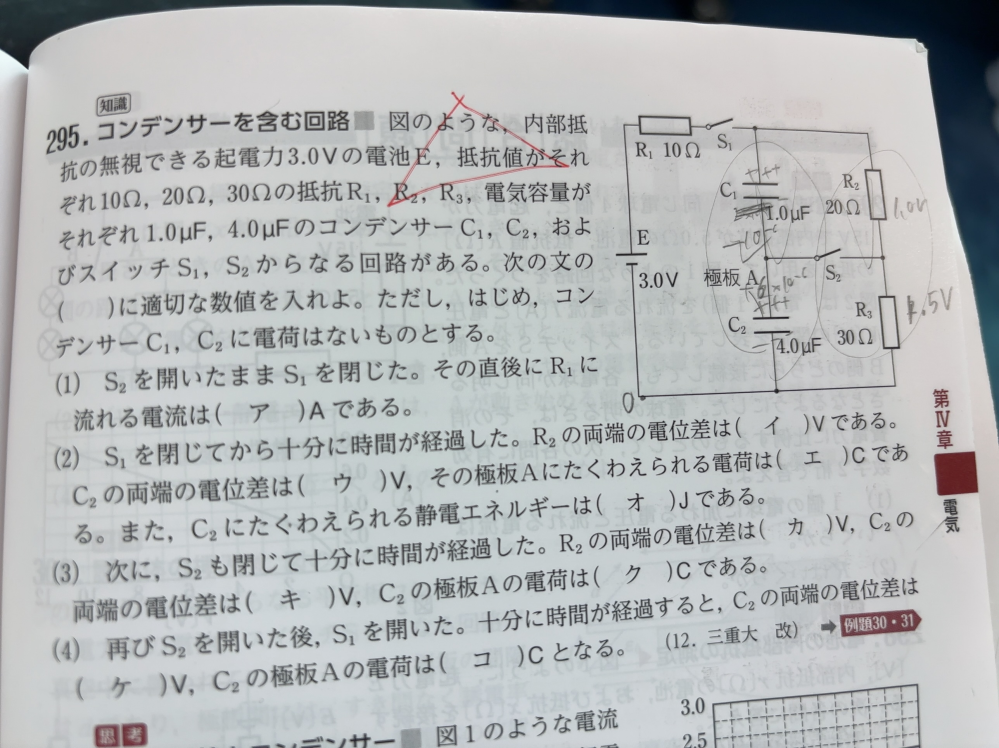 知識
295. コンデンサーを含む回路 図のような，内部抵
抗の無視できる起電力3.0Vの電池E，抵抗値がそれ
ぞれ10Ω，20Ω，30Ωの抵抗R₁，R₂，R₃，電気容量が
それぞれ1.0μF，4.0μFのコンデンサーC₁，C₂，およ
びスイッチS₁，S₂からなる回路がある。次の文の
(　)に適切な数値を入れよ。ただし，はじめ，コン
デンサーC₁，C₂に電荷はないものとする。
(1) S₂を開いたままS₁を閉じた。その直後にR₁に
流れる電流は( ア )Aである。
(2) S₁を閉じてから十分に時間が経過した。R₂の両端の電位差は( イ )Vである。
C₂の両端の電位差は( ウ )V，その極板Aにたくわえられる電荷は( エ )Cであ
る。また，C₂にたくわえられる静電エネルギーは( オ )Jである。
(3) 次に，S₂も閉じて十分に時間が経過した。R₂の両端の電位差は( カ )V，C₂の
両端の電位差は( キ )V，C₂の極板Aの電荷は( ク )Cである。
(4) 再びS₂を開いた後，S₁を開いた。十分に時間が経過すると，C₂の両端の電位差は
( ケ )V，C₂の極板Aの電荷は( コ )Cとなる。
(12. 三重大 改) ➡ 例題30・31
R₁ 10Ω S₁
C₁
1.0μF
R₂
20Ω
E
3.0V
S₂
極板A
C₂
4.0μF
R₃
30Ω
0
第Ⅳ章
電気
思考
コンデンサー 図1のような電流
3.0
2.5